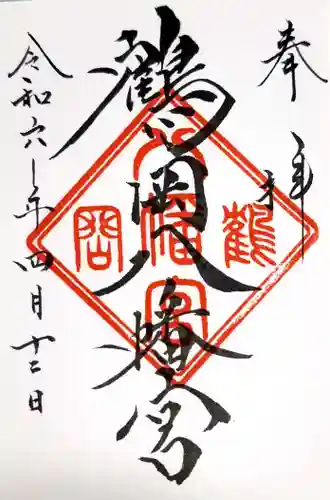 奉拝
鶴岡八幡宮
令和六年四月十二日
鶴
岡
八幡宮